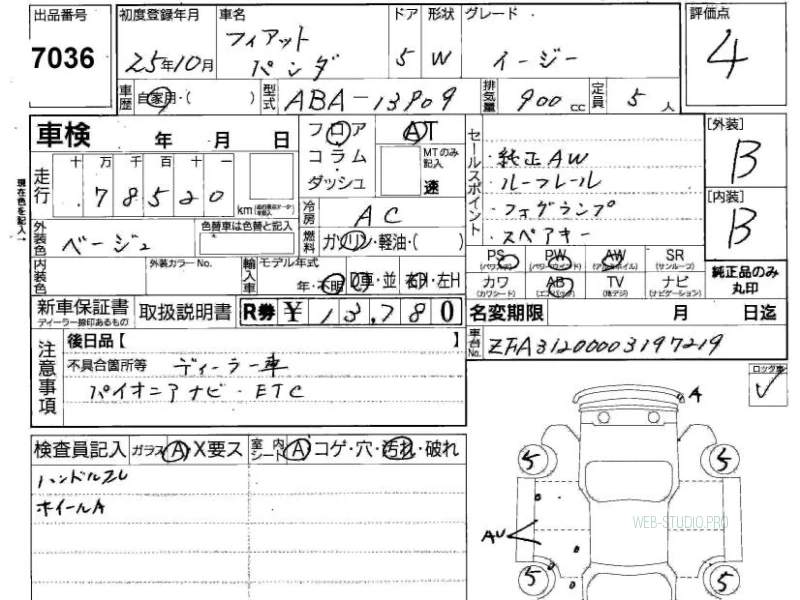 出品番号 初度登録年月 車名 ドア 形状 グレード 評価点
7036 25年10月 フィアット パンダ 5 W イージー 4
車歴 自家用・( ) 型式 ABA-13909 排気量 900cc 定員 5人
車検 年 月 日 フロア AT セールスポイント [外装]
十万千百十一 コラム・ MTのみ記入 ・純正AW B
走行 78520 km ダッシュ 速 ・ルーフレール
現在色を記入→ ・フォグランプ [内装]
外装色 ベージュ 色替車は色替と記入 冷房 AC ・スペアキー B
燃料 ガソリン・軽油・( )
内装色 外装カラーNo. 輸入車 モデル年式 年・不明 D車・並 右H・左H
PS (パワステ) PW (パワーウインド) AW (アルミホイル) SR (サンルーフ) 純正品のみ丸印
カワ (カワシート) AB (エアバッグ) TV (地デジ) ナビ (ナビゲーション)
新車保証書 ディーラー線印あるもの 取扱説明書 R券 ¥13,780 名変期限 月 日迄
注意事項 後日品【 】 車台No. ZFA31200003197219
不具合箇所等 ディーラー車
パイオニアナビ・ETC ロック車
検査員記入 ガラス A・X要ス 室内シート A コゲ・穴・汚れ・破れ A
ハンドルスレ 5 5
ホイールA
WEB-STUDIO.PRO
AU
5 5